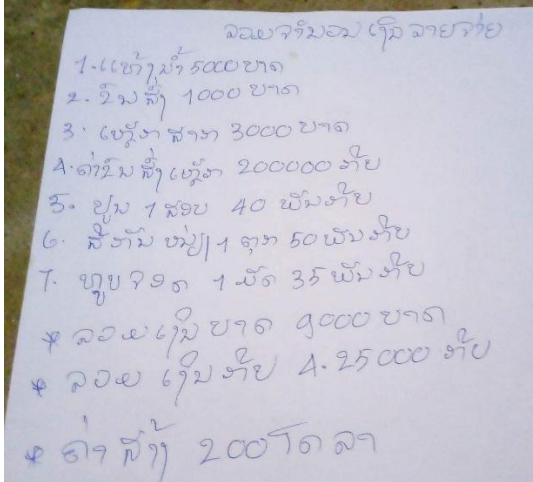 ລວມຈຳນວນເງິນລາຍຈ່າຍ
1. ແທ້ງນ້ຳ 5000 ບາດ
2. ຂົນສົ່ງ 1000 ບາດ
3. ເຫຼັກ ສາກ 3000 ບາດ
4. ຄ່າຂົນສົ່ງເຫຼັກ 200000 ກີບ
5. ປູນ 1 ສອບ 40 ພັນກີບ
6. ສີກັນ 1 ຕຸກ 50 ພັນກີບ
7. ທູບຈອດ 1 ມັດ 35 ພັນກີບ
* ລວມເງິນບາດ 9000 ບາດ
* ລວມ ເງິນກີບ 4.25000 ກີບ
* ຄ່າສ້າງ 200 ໂດລາ